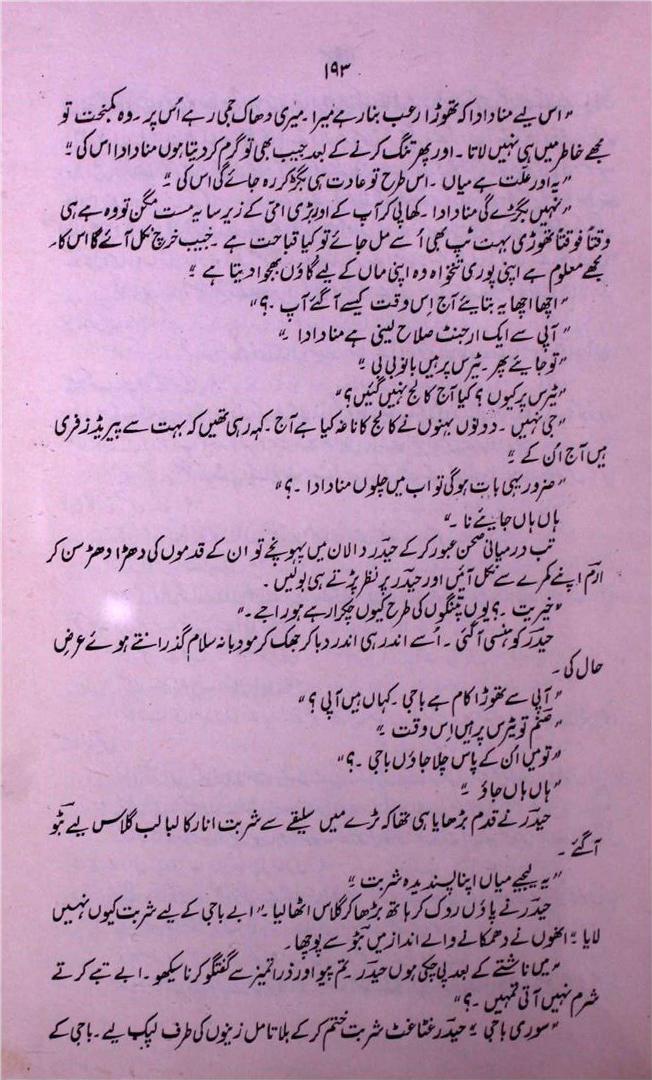 ۱۹۳
"اس لیے منا دادا کہ تھوڑا رعب بنا رہے میرا۔ میری دھاک جمی رہے اُس پر۔ وہ کمبخت تو
مجھے خاطر میں ہی نہیں لاتا۔ اور پھر تنگ کرنے کے بعد جیب بھی تو گرم کر دیتا ہوں منا دادا اس کی ۔"
"یہ اور علّت ہے میاں ۔ اس طرح تو عادت ہی بگڑ کر رہ جائے گی اس کی ۔"
"نہیں بگڑے گی منا دادا ۔ کھا پی کر آپ کے اور بڑی امی کے زیر سایہ مست مگن تو وہ ہے ہی
وقتاً فوقتاً تھوڑی بہت ٹپ بھی اُسے مل جائے تو کیا قباحت ہے ۔ جیب خرچ نکل آئے گا اس کا ۔
مجھے معلوم ہے اپنی پوری تنخواہ وہ اپنی ماں کے لیے گاؤں بھجوا دیتا ہے ۔"
"اچھا اچھا یہ بتایئے آج اِس وقت کیسے آگئے آپ ۔؟"
"آپی سے ایک ارجنٹ صلاح لینی ہے منا دادا ۔"
"تو جایئے پھر ۔ ٹیرس پر ہیں بانو بی بی ۔"
"ٹیرس پر کیوں ؟ کیا آج کالج نہیں گئیں؟"
"جی نہیں ۔ دونوں بہنوں نے کالج کا ناغہ کیا ہے آج ۔ کہہ رہی تھیں کہ بہت سے پیریڈز فری
ہیں آج اُن کے ۔"
"ضرور یہی بات ہوگی تو اب میں چلوں منا دادا ۔؟"
ہاں ہاں جایئے نا ۔"
تب درمیانی صحن عبور کر کے حیدر دالان میں پہونچے تو ان کے قدموں کی دھڑا دھڑ سن کر
ارم اپنے کمرے سے نکل آئیں اور حیدر پر نظر پڑتے ہی بولیں ۔
"خیریت ۔؟ یوں پتنگوں کی طرح کیوں چکرا رہے ہو راجے ۔"
حیدر کو ہنسی آگئی ۔ اُسے اندر ہی اندر دبا کر جھک کر مودبانہ سلام گذرانتے ہوئے عرض
حال کی ۔
"آپی سے تھوڑا کام ہے باجی ۔ کہاں ہیں آپی ؟"
"صنم تو ٹیرس پر ہیں اِس وقت ۔"
"تو میں اُن کے پاس چلا جاؤں باجی ۔؟"
"ہاں ہاں جاؤ ۔"
حیدر نے قدم بڑھایا ہی تھا کہ ٹرے میں سلیقے سے شربت انار کا لبالب گلاس لیے ببّو
آگئے ۔
"یہ لیجیے میاں اپنا پسندیدہ شربت ۔"
حیدر نے پاؤں روک کر ہاتھ بڑھا کر گلاس اٹھا لیا ۔ "ابے باجی کے لیے شربت کیوں نہیں
لایا ۔" انھوں نے دھمکانے والے انداز میں ببّو سے پوچھا ۔
"میں ناشتے کے بعد پی چکی ہوں حیدر ۔ تم پیو اور ذرا تمیز سے گفتگو کرنا سیکھو ۔ ابے تبے کرتے
شرم نہیں آتی تمہیں ۔؟"
"سوری باجی ۔" حیدر غٹا غٹ شربت ختم کر کے بلا تامل زینوں کی طرف لپک لیے ۔ باجی کے